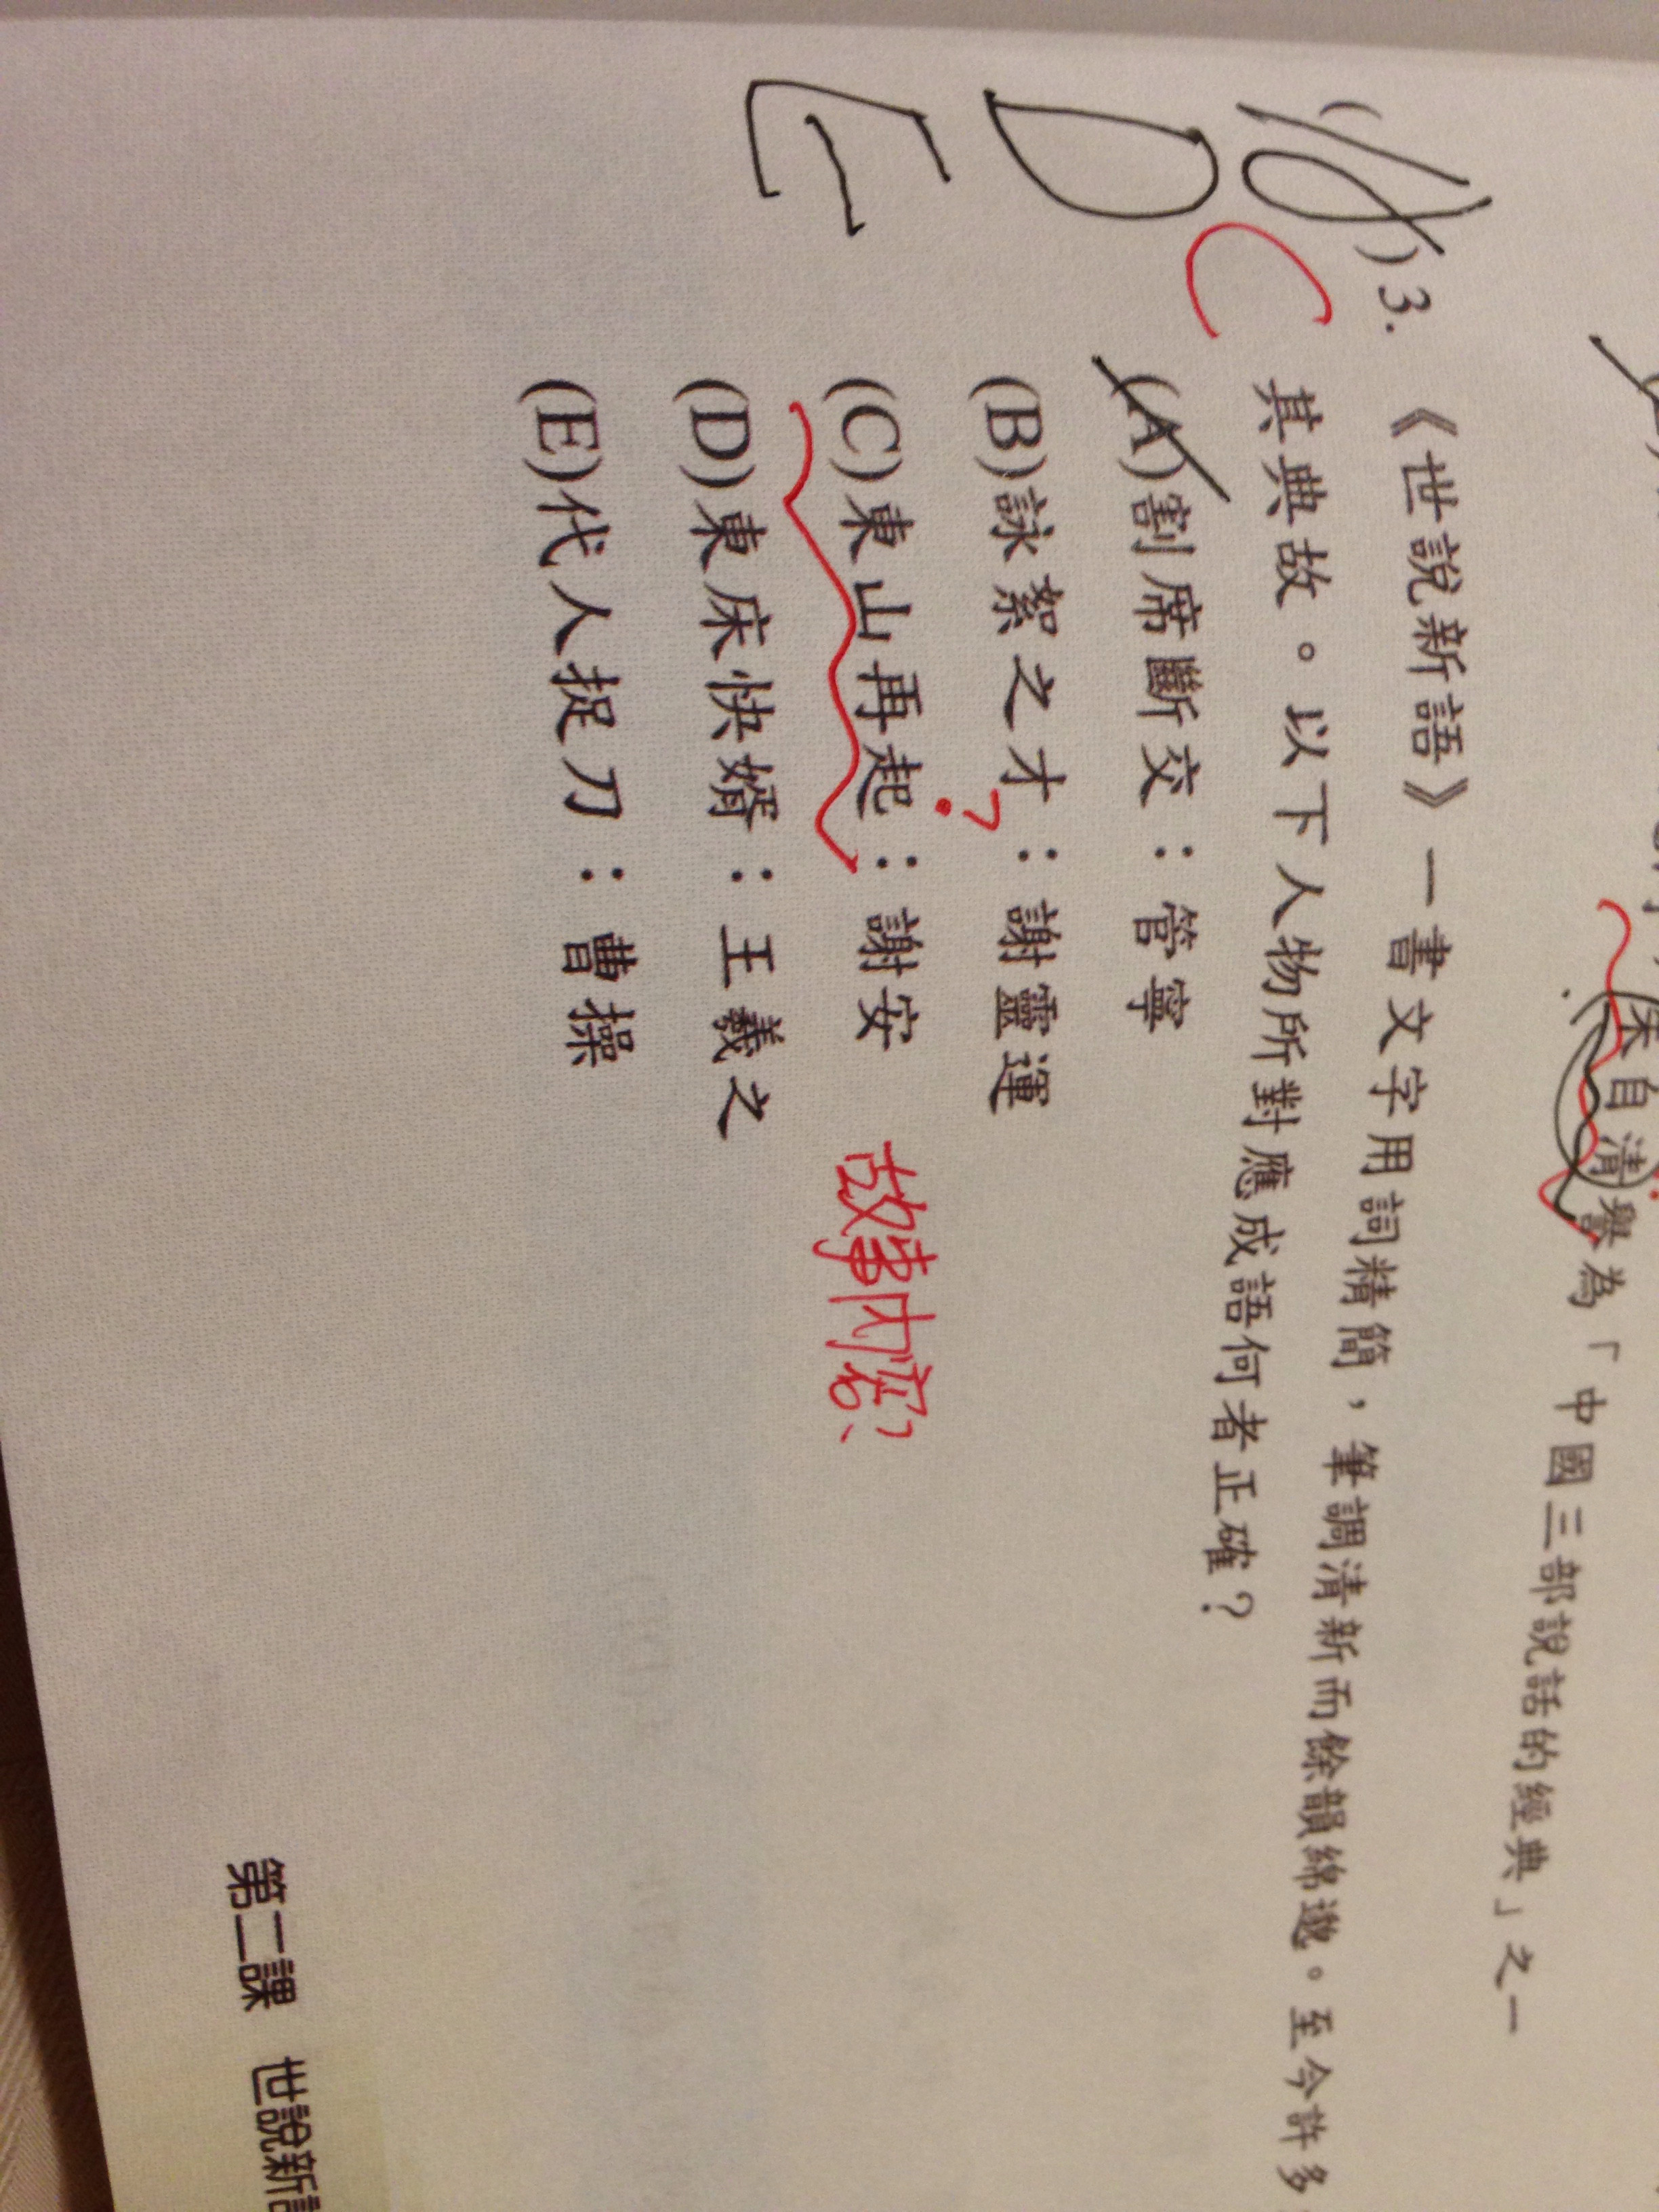 朱自清譽為「中國三部說話的經典」之一
( )3.《世說新語》一書文字用詞精簡，筆調清新而餘韻綿邈。至今許多
其典故。以下人物所對應成語何者正確？
(A)割席斷交：管寧
(B)詠絮之才：謝靈運
?
(C)東山再起：謝安 故事內容?
(D)東床快婿：王羲之
(E)代人捉刀：曹操
D
C
E
第二課 世說新